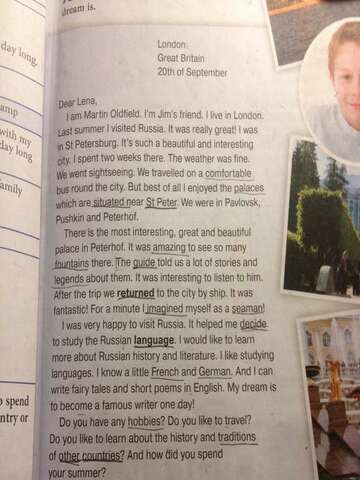 dream is.
day long.
amp
with my
day long
family
o spend
ntry or
London.
Great Britain
20th of September
Dear Lena,
I am Martin Oldfield. I'm Jim's friend. I live in London.
Last summer I visited Russia. It was really great! I was
in St Petersburg. It's such a beautiful and interesting
city. I spent two weeks there. The weather was fine.
We went sightseeing. We travelled on a comfortable
bus round the city. But best of all I enjoyed the palaces
which are situated near St Peter. We were in Pavlovsk,
Pushkin and Peterhof.
There is the most interesting, great and beautiful
palace in Peterhof. It was amazing to see so many
fountains there. The guide told us a lot of stories and
legends about them. It was interesting to listen to him.
After the trip we returned to the city by ship. It was
fantastic! For a minute I imagined myself as a seaman!
I was very happy to visit Russia. It helped me decide
to study the Russian language. I would like to learn
more about Russian history and literature. I like studying
languages. I know a little French and German. And I can
write fairy tales and short poems in English. My dream is
to become a famous writer one day!
Do you have any hobbies? Do you like to travel?
Do you like to learn about the history and traditions
of other countries? And how did you spend
your summer?